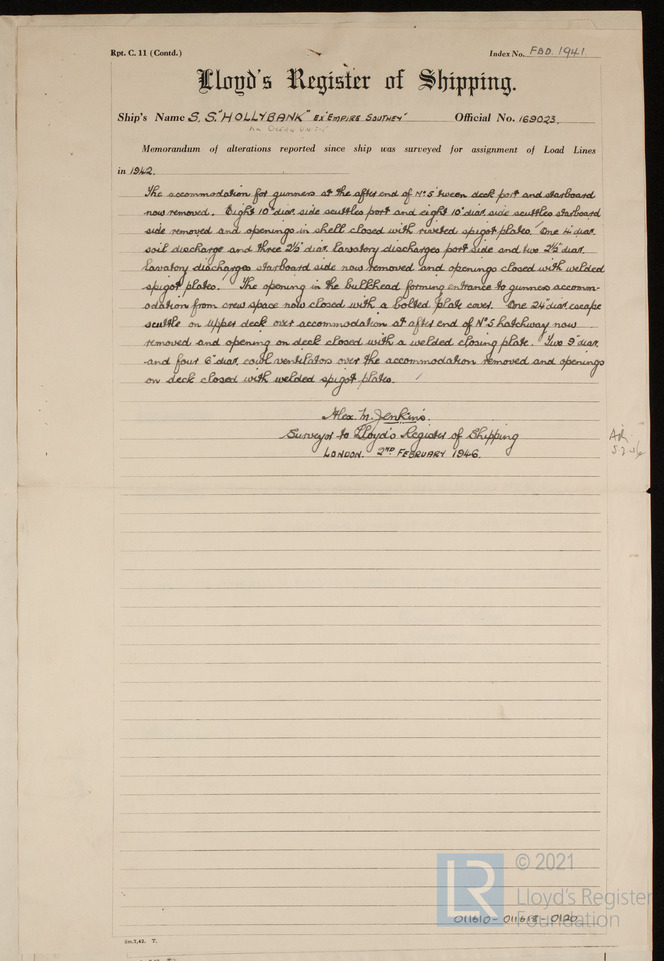 Rpt. C. 11 (Contd.)
Index No. FBD. 1941.
Lloyd's Register of Shipping.
Ship's Name S.S. "HOLLYBANK" EX "EMPIRE SOUTHEY" Official No. 169023.
Memorandum of alterations reported since ship was surveyed for assignment of Load Lines
in 1942.
The accommodation for gunners at the after end of No 5 'tween deck port and starboard
now removed. Eight 10" diar side scuttles port and eight 10" diar side scuttles starboard
side removed and openings in shell closed with riveted spigot plates. One 4" diar.
soil discharge and three 2½" diar. lavatory discharges port side and two 2½" diar.
lavatory discharges starboard side now removed and openings closed with welded
spigot plates. The opening in the bulkhead forming entrance to gunners accomm-
odation from crew space now closed with a bolted plate cover. One 24" diar escape
scuttle on upper deck over accommodation at after end of No 5 hatchway now
removed and opening on deck closed with a welded closing plate. Two 9" diar.
and four 6" diar. cowl ventilators over the accommodation removed and openings
on deck closed with welded spigot plates.
Alex M. Jenkins.
Surveyor to Lloyd's Register of Shipping
LONDON. 2ND FEBRUARY 1946.
5m.7,42. T.
LR
© 2021
Lloyd's Register
Foundation
011610-011618-0120